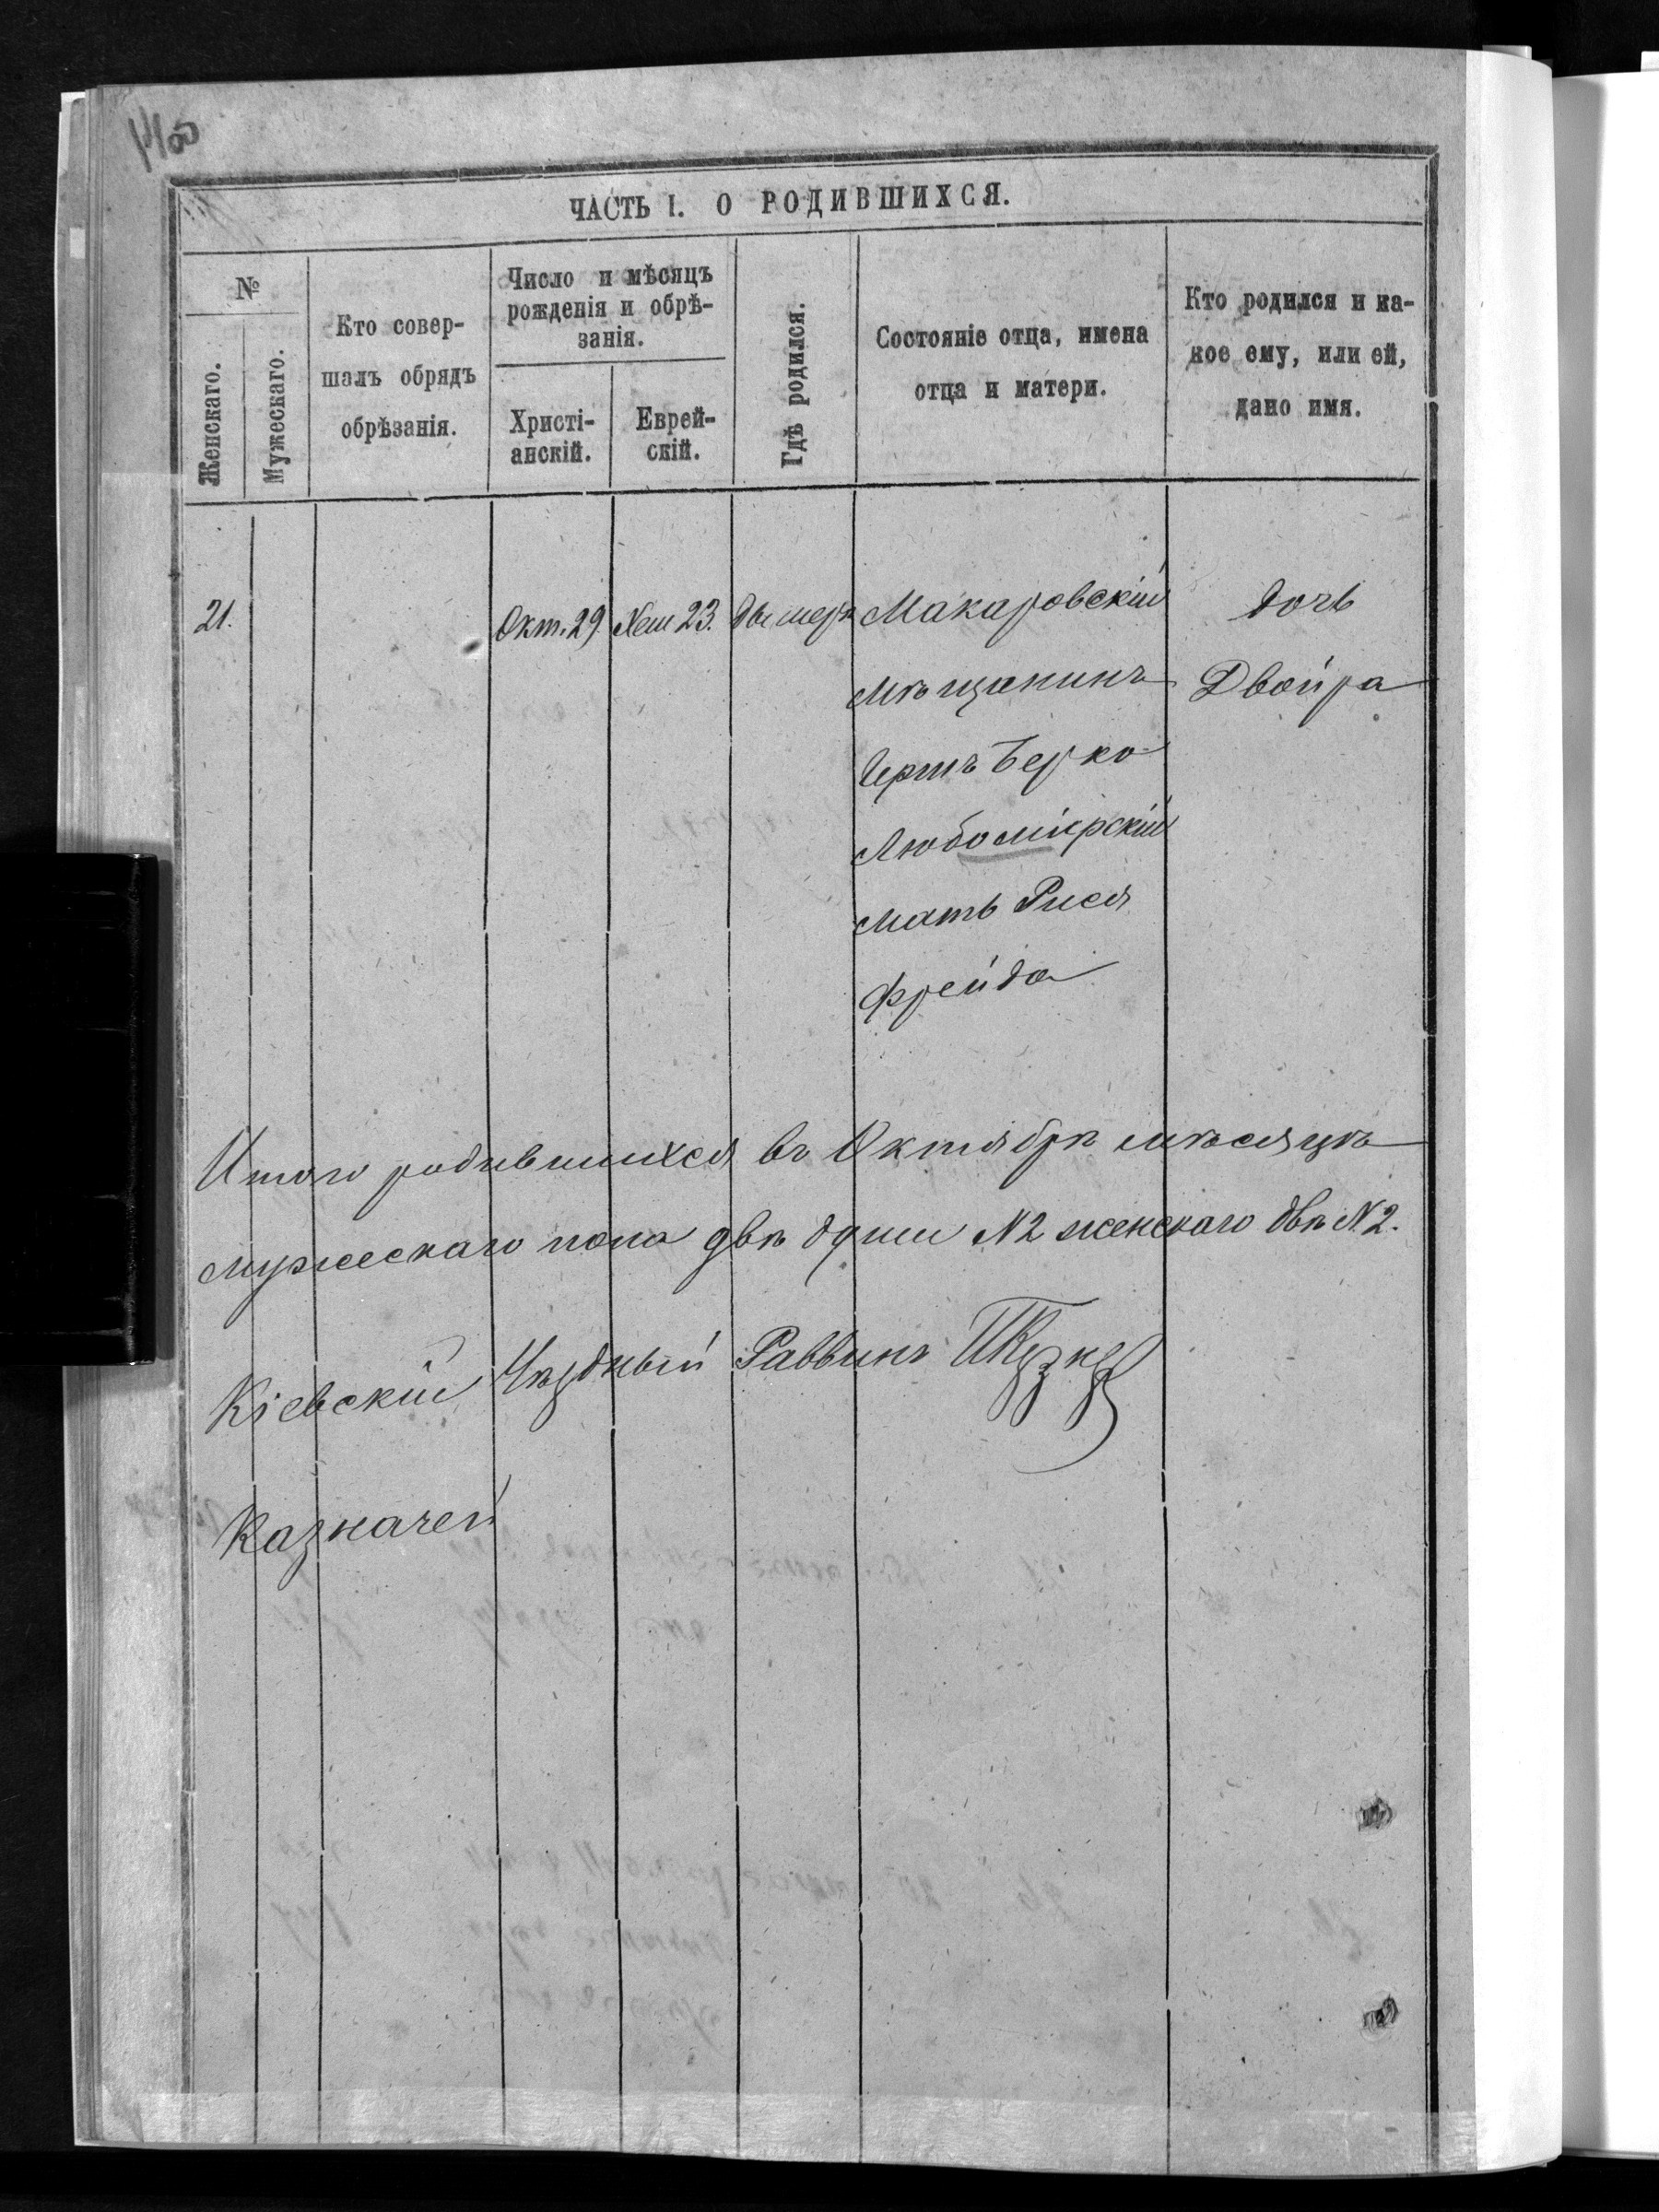 ЧАСТЬ I. О РОДИВШИХСЯ.
№
Женскаго.
Мужескаго.
Кто совер-
шалъ обрядъ
обрѣзанія.
Число и мѣсяцъ
рожденія и обрѣ-
занія.
Христі-
анскій.
Еврей-
скій.
Гдѣ родился.
Состояніе отца, имена
отца и матери.
Кто родился и ка-
кое ему, или ей,
дано имя.
21. Окт. 29. Хеш 23. Дымерѣ Макаровскій дочь
Мѣщанинъ Двойра
Герш Берко
Любомірскій
Мать Рися
Фрейда
Итого родившихся въ Октябрѣ мѣсяцѣ
мужескаго пола двѣ души №2 женскаго двѣ №2.
Кіевскій Уѣздный Раввинъ
Казначей